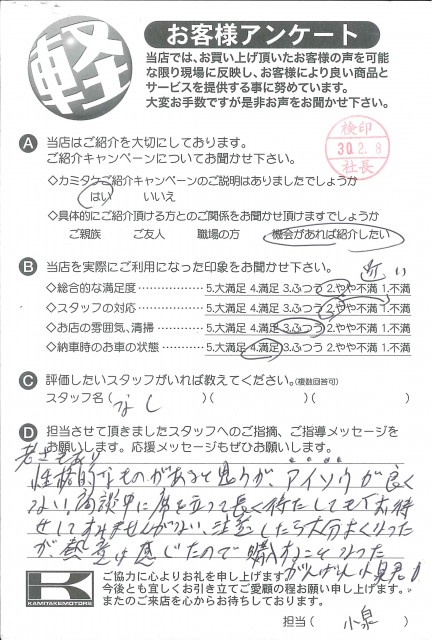 軽
お客様アンケート
当店では、お買い上げ頂いたお客様の声を可能
な限り現場に反映し、お客様により良い商品と
サービスを提供する事に努めています。
大変お手数ですが是非お声をお聞かせ下さい。
検印
30.2.8
社長
A 当店はご紹介を大切にしております。
ご紹介キャンペーンについてお聞かせ下さい。
◇カミタケご紹介キャンペーンのご説明はありましたでしょうか
はい いいえ
◇具体的にご紹介頂ける方とのご関係をお聞かせ頂けますでしょうか
ご親族 ご友人 職場の方 機会があれば紹介したい
B 当店を実際にご利用になった印象をお聞かせ下さい。 近い
◇総合的な満足度 5.大満足 4.満足 3.ふつう 2.やや不満 1.不満
◇スタッフの対応 5.大満足 4.満足 3.ふつう 2.やや不満 1.不満
◇お店の雰囲気、清掃 5.大満足 4.満足 3.ふつう 2.やや不満 1.不満
◇納車時のお車の状態 5.大満足 4.満足 3.ふつう 2.やや不満 1.不満
C 評価したいスタッフがいれば教えてください。(複数回答可)
スタッフ名( なし )( )( )
D 担当させて頂きましたスタッフへのご指摘、ご指導メッセージを
お願いします。応援メッセージもぜひお願いします。
性格的なものがあると思うが、アイソウが良く
ない、商談中に席を立って長く待たしても「お待
せしてすみませんがない、注意したら大分よくなった
が、熱意は感じたので購入することになった
がんばれ小泉君!
KAMITAKEMOTORS
ご協力に心よりお礼を申し上げます
今後とも宜しくお引き立てご愛顧の程お願い申し上げます。
またのご来店を心からお待ちしております。
担当( 小泉 )